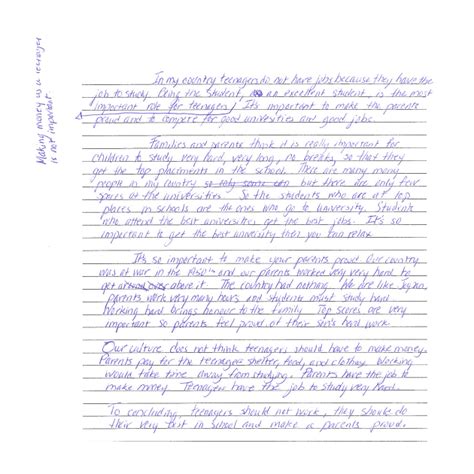 Making money as a teenager
is not important
In my country teenagers do not have jobs because they have the
job to study. Being the student, an excellent student, is the most
important role for teenagers. It's important to make the parents
proud and to compete for good universities and good jobs.
Families and parents think it is really important for
children to study very hard, very long, no breaks, so that they
get the top placements in the school. There are many many
people in my country but there are only few
spots at the universities. So the students who are at top
places in schools are the ones who go to university. Students
who attend the best universities get the best jobs. It's so
important to get the best university then you can relax.
It's so important to make your parents proud. Our country
was at war in the 1950's and our parents worked very very hard to
get above it. The country had nothing. We are like Japan,
parents work very many hours and students must study hard.
Working hard brings honour to the family. Top scores are very
important so parents feel proud of their son's hard work.
Our culture does not think teenagers should have to make money.
Parents pay for the teenagers shelter, food, and clothing. Working
would take time away from studying. Parents have the job to
make money. Teenagers have the job to study very hard.
To concluding, teenagers should not work, they should do
their very best in school and make a parents proud.